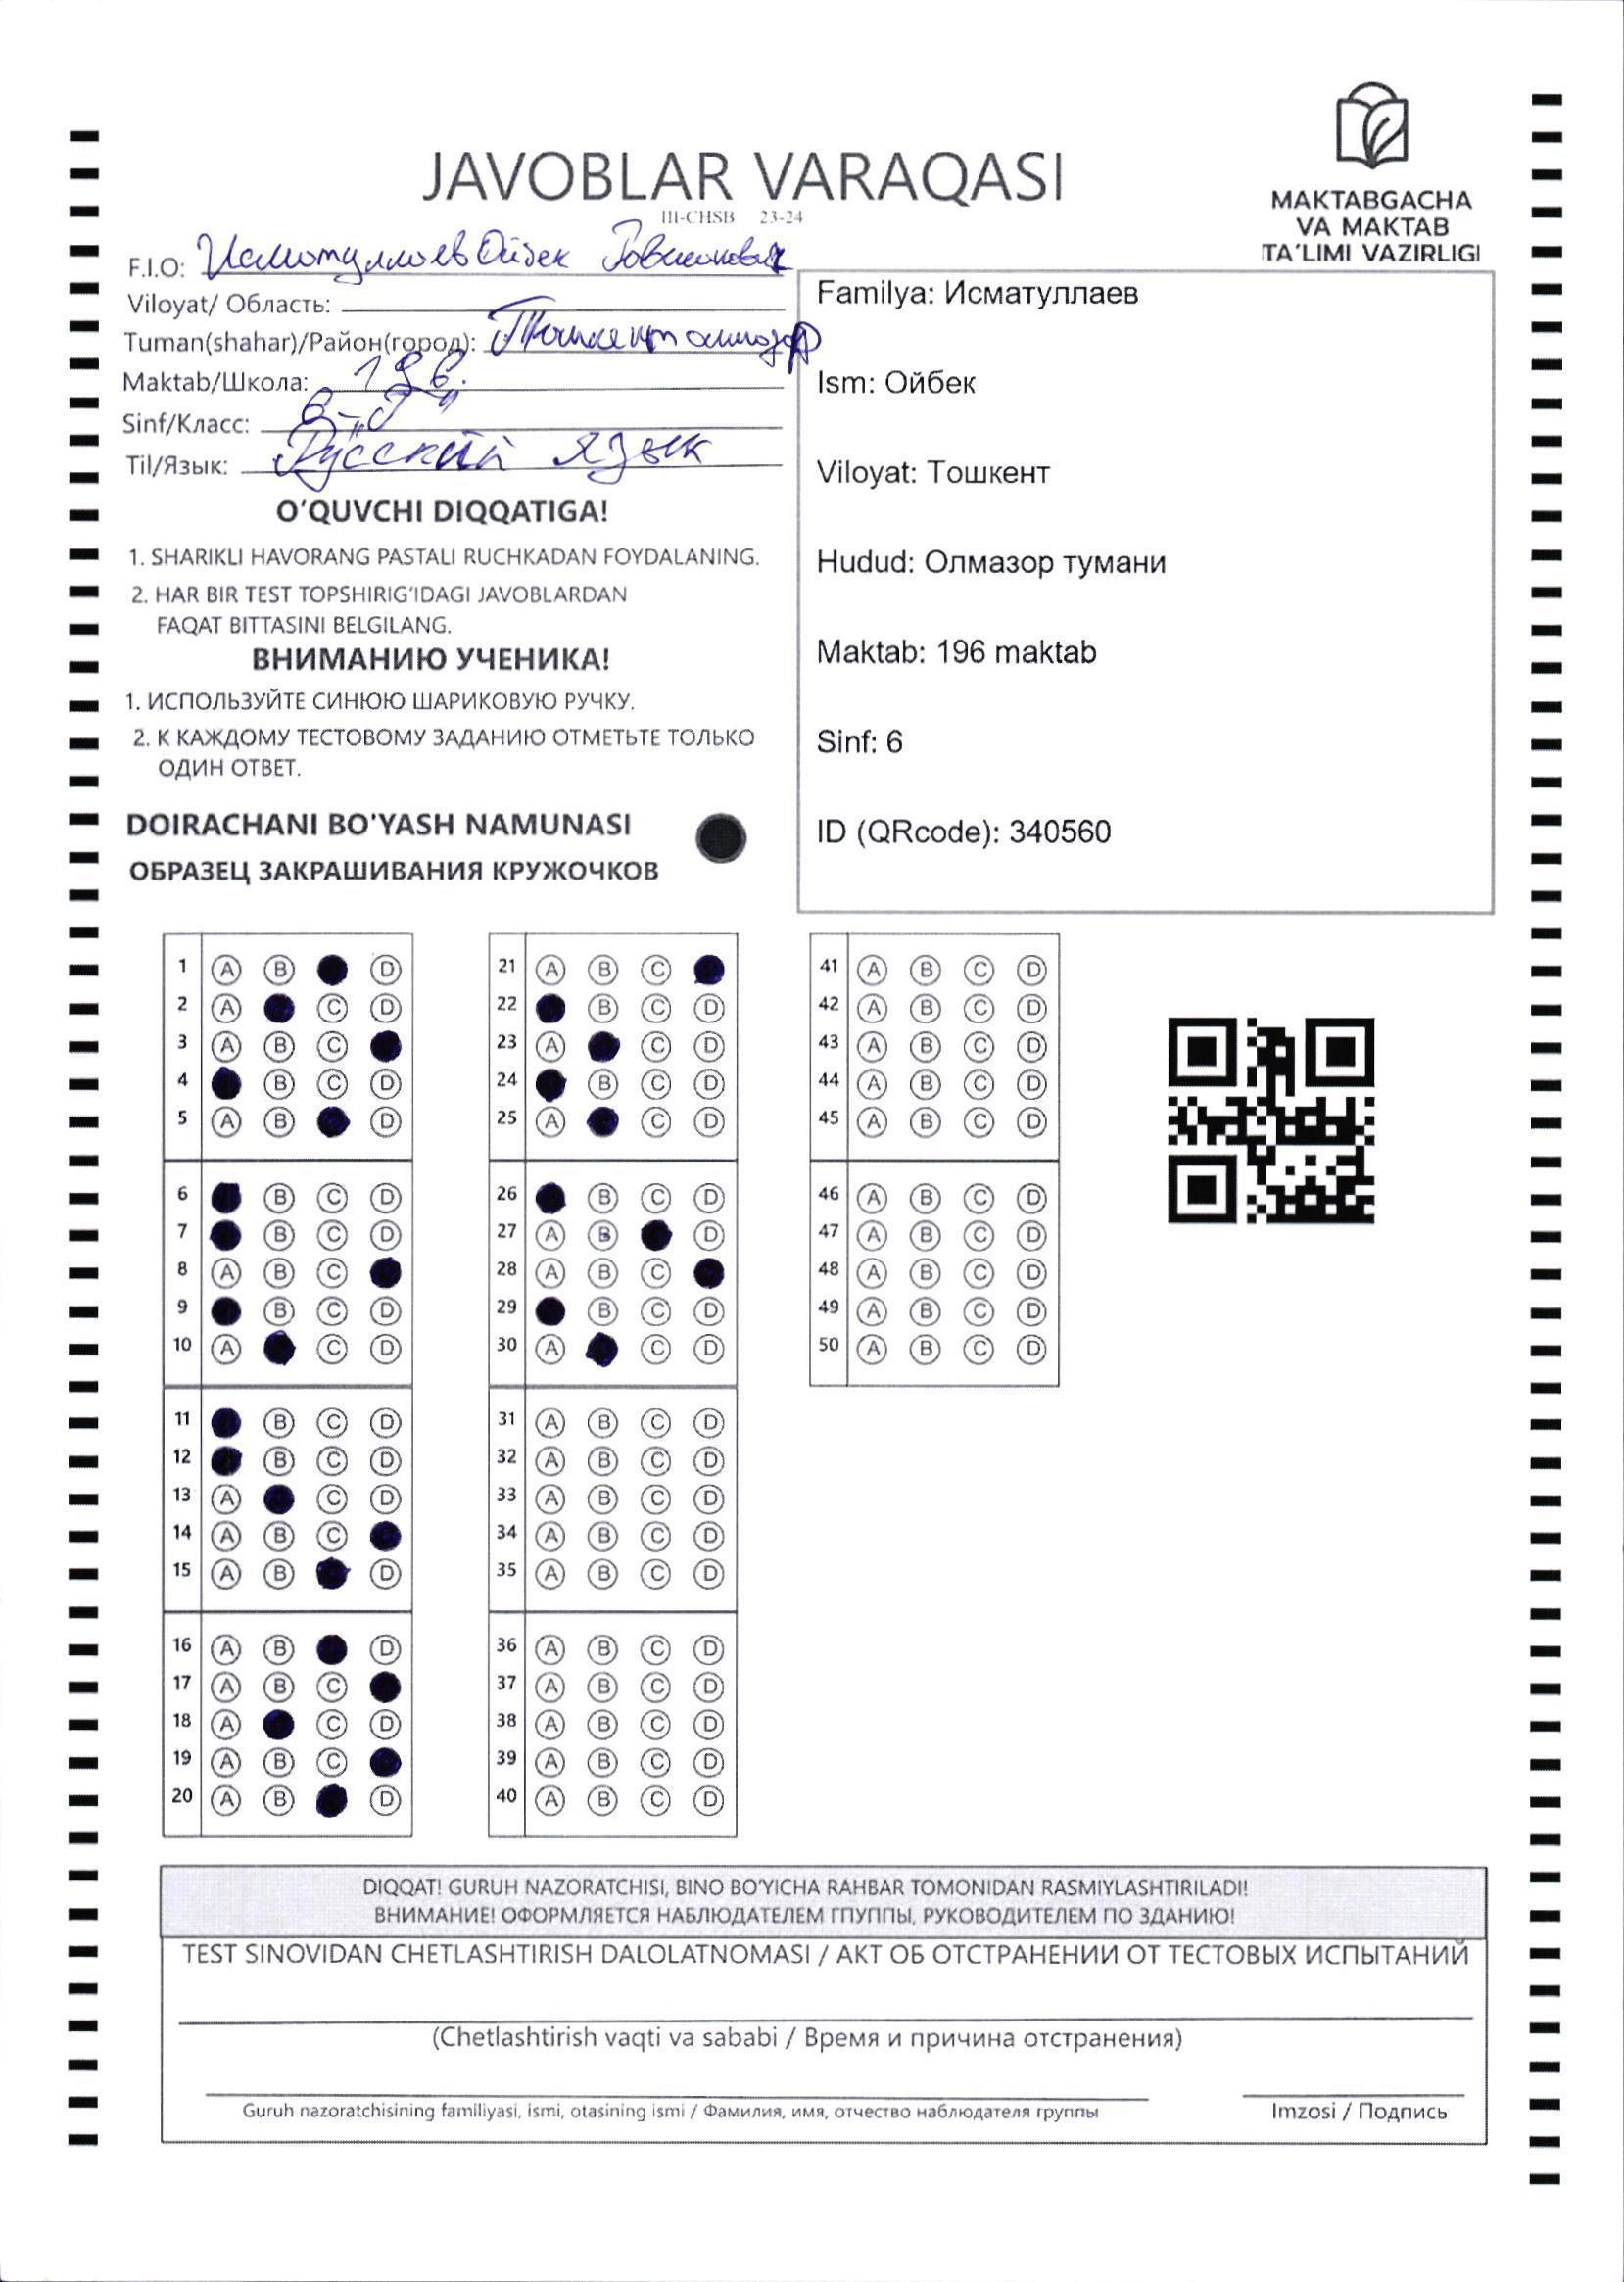 JAVOBLAR VARAQASI
III-CHSB 23-24
MAKTABGACHA
VA MAKTAB
TA'LIMI VAZIRLIGI
F.I.O: Исматуллаев Ойбек
Viloyat/ Область:
Tuman(shahar)/Район(город): Тошкент олмазор
Maktab/Школа: 196.
Sinf/Класс: 6-„Г"
Til/Язык: Русский язык
O'QUVCHI DIQQATIGA!
1. SHARIKLI HAVORANG PASTALI RUCHKADAN FOYDALANING.
2. HAR BIR TEST TOPSHIRIG'IDAGI JAVOBLARDAN
FAQAT BITTASINI BELGILANG.
ВНИМАНИЮ УЧЕНИКА!
1. ИСПОЛЬЗУЙТЕ СИНЮЮ ШАРИКОВУЮ РУЧКУ.
2. К КАЖДОМУ ТЕСТОВОМУ ЗАДАНИЮ ОТМЕТЬТЕ ТОЛЬКО
ОДИН ОТВЕТ.
DOIRACHANI BO'YASH NAMUNASI
ОБРАЗЕЦ ЗАКРАШИВАНИЯ КРУЖОЧКОВ
Familya: Исматуллаев
Ism: Ойбек
Viloyat: Тошкент
Hudud: Олмазор тумани
Maktab: 196 maktab
Sinf: 6
ID (QRcode): 340560
1 A B D
2 A C D
3 A B C
4 B C D
5 A B D
6 B C D
7 B C D
8 A B C
9 B C D
10 A C D
11 B C D
12 B C D
13 A C D
14 A B C
15 A B D
16 A B D
17 A B C
18 A C D
19 A B C
20 A B D
21 A B C
22 B C D
23 A C D
24 B C D
25 A C D
26 B C D
27 A B D
28 A B C
29 B C D
30 A C D
31 A B C D
32 A B C D
33 A B C D
34 A B C D
35 A B C D
36 A B C D
37 A B C D
38 A B C D
39 A B C D
40 A B C D
41 A B C D
42 A B C D
43 A B C D
44 A B C D
45 A B C D
46 A B C D
47 A B C D
48 A B C D
49 A B C D
50 A B C D
DIQQAT! GURUH NAZORATCHISI, BINO BO'YICHA RAHBAR TOMONIDAN RASMIYLASHTIRILADI!
ВНИМАНИЕ! ОФОРМЛЯЕТСЯ НАБЛЮДАТЕЛЕМ ГПУППЫ, РУКОВОДИТЕЛЕМ ПО ЗДАНИЮ!
TEST SINOVIDAN CHETLASHTIRISH DALOLATNOMASI / АКТ ОБ ОТСТРАНЕНИИ ОТ ТЕСТОВЫХ ИСПЫТАНИЙ
(Chetlashtirish vaqti va sababi / Время и причина отстранения)
Guruh nazoratchisining familiyasi, ismi, otasining ismi / Фамилия, имя, отчество наблюдателя группы
Imzosi / Подпись